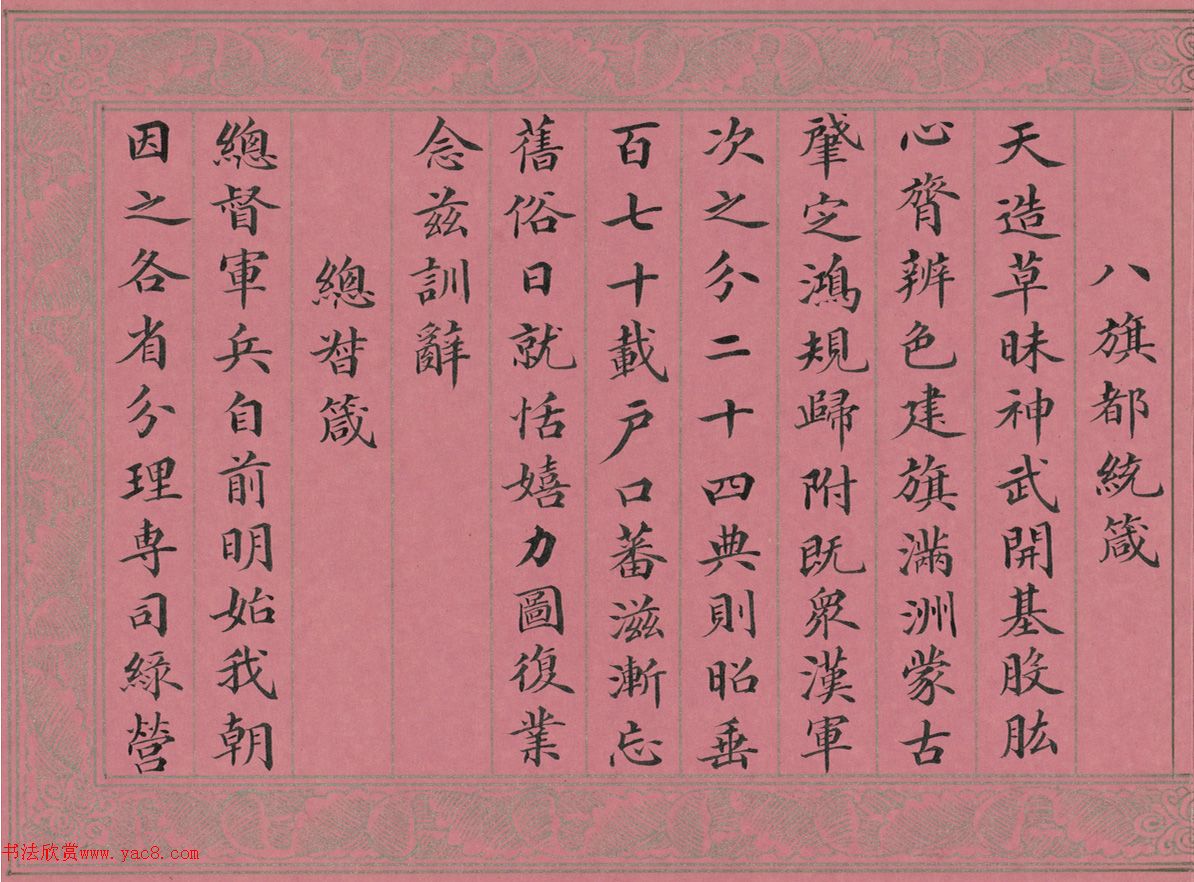 八旗都統箴
天造草昧神武開基股肱
心膂辨色建旗滿洲蒙古
肇定鴻規歸附既眾漢軍
次之分二十四典則昭垂
百七十載戶口蕃滋漸忘
舊俗日就恬嬉力圖復業
念兹訓辭
總督箴
總督軍兵自前明始我朝
因之各省分理專司綠營
书法欣赏www.yac8.com